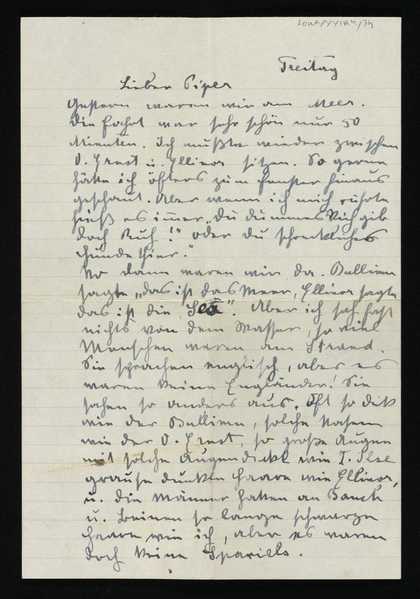 Freitag
Lieber Piper
Gestern waren wir am Meer.
Die Fahrt war sehr schön nur 50
Minuten. Ich mußte wieder zwischen
O. Ernst u. Ellinor sitzen. So gerne
hätte ich öfters zum Fenster hinaus
geschaut. Aber wenn ich mich rührte
hieß es immer, du dummes Vieh gib
doch Ruh!" oder du schreckliches
Hundetier."
No dann waren wir da. Bullien
sagte „das ist das Meer, Ellinor sagte
das ist die See". Aber ich sah fast
nichts von dem Wasser, so viel
Menschen waren am Strand.
Sie sprachen englisch, aber es
waren keine Engländer. Sie
sahen so anders aus. Oft so dick
wie der Bullien, solche Nasen
wie der O. Ernst, so große Augen
mit solche Augendeckel wie T. Ilse
grause dunkle Haare wie Ellinor,
u. die Männer hatten an Bauch
u. Beinen so lange schwarze
Haare wie ich, aber es waren
doch keine Spaniels.